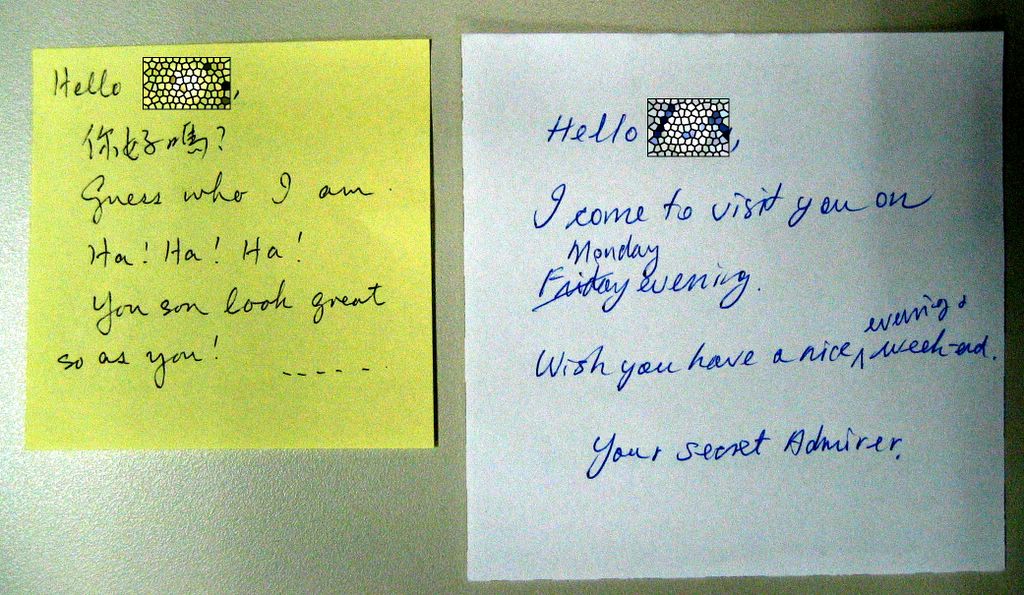 Hello ,
你好嗎?
Guess who I am.
Ha! Ha! Ha!
You son look great
so as you!
- - - - -
Hello ,
I come to visit you on
Monday
Friday evening.
evening &
Wish you have a nice, week-end.
Your secret Admirer.